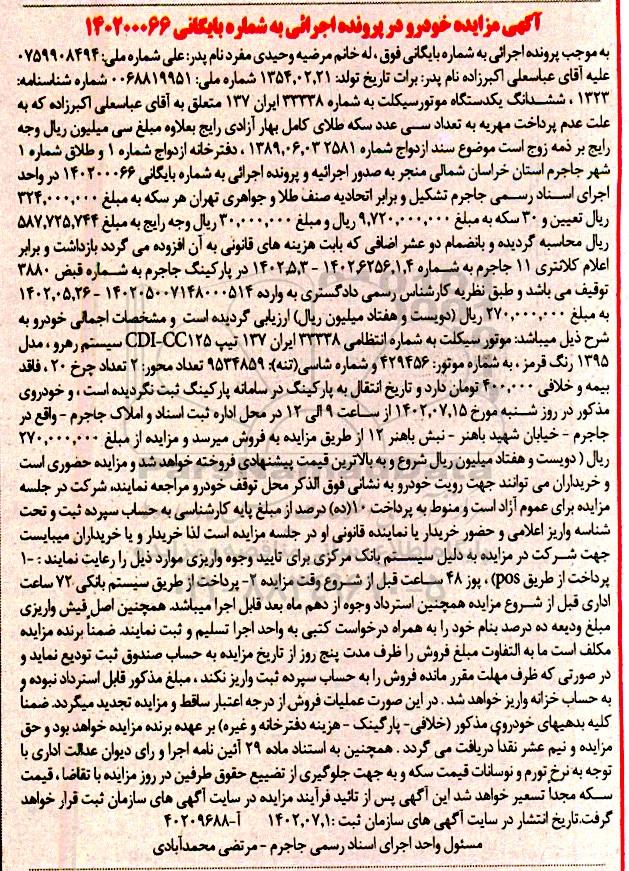 آگهی مزایده خودرو در پرونده اجرائی به شماره بایگانی ۱۴۰۲۰۰۰۶۶
به موجب پرونده اجرائی به شماره بایگانی فوق ، له خانم مرضیه وحیدی مفرد نام پدر: علی شماره ملی: ۰۷۵۹۹۰۸۴۹۴
علیه آقای عباسعلی اکبرزاده نام پدر: برات تاریخ تولد: ۱۳۵۴,۰۲,۲۱ شماره ملی: ۰۰۶۸۸۱۹۹۵۱ شماره شناسنامه:
۱۳۲۳ ، ششدانگ یکدستگاه موتورسیکلت به شماره ۳۳۳۳۸ ایران ۱۳۷ متعلق به آقای عباسعلی اکبرزاده که به
علت عدم پرداخت مهریه به تعداد سی عدد سکه طلای کامل بهار آزادی رایج بعلاوه مبلغ سی میلیون ریال وجه
رایج بر ذمه زوج است موضوع سند ازدواج شماره ۲۵۸۱ ۱۳۸۹,۰۶,۰۳ ، دفترخانه ازدواج شماره ۱ و طلاق شماره ۱
شهر جاجرم استان خراسان شمالی منجر به صدور اجرائیه و پرونده اجرائی به شماره بایگانی ۱۴۰۲۰۰۰۶۶ در واحد
اجرای اسناد رسمی جاجرم تشکیل و برابر اتحادیه صنف طلا و جواهری تهران هر سکه به مبلغ ۳۲۴,۰۰۰,۰۰۰
ریال تعیین و ۳۰ سکه به مبلغ ۹,۷۲۰,۰۰۰,۰۰۰ ریال و مبلغ ۳۰,۰۰۰,۰۰۰ ریال وجه رایج به مبلغ ۵۸۷,۷۲۵,۷۴۴
ریال محاسبه گردیده و بانضمام دو عشر اضافی که بابت هزینه های قانونی به آن افزوده می گردد بازداشت و برابر
اعلام کلانتری ۱۱ جاجرم به شماره ۱۴۰۲,۶۲۵۶,۱,۴ – ۱۴۰۲,۵,۳ در پارکینگ جاجرم به شماره قبض ۳۸۸۰
توقیف می باشد و طبق نظریه کارشناس رسمی دادگستری به وارده ۱۴۰۲۰۵۰۰۷۱۴۸۰۰۰۵۱۴ – ۱۴۰۲,۰۵,۲۶
به مبلغ ۲۷۰,۰۰۰,۰۰۰ ریال (دویست و هفتاد میلیون ریال) ارزیابی گردیده است و مشخصات اجمالی خودرو به
شرح ذیل میباشد: موتور سیکلت به شماره انتظامی ۳۳۳۳۸ ایران ۱۳۷ تیپ CDI-CC۱۲۵ سیستم رهرو ، مدل
۱۳۹۵ رنگ قرمز ، به شماره موتور: ۴۲۹۴۵۶ و شماره شاسی(تنه): ۹۵۳۴۸۵۹ تعداد محور: ۲ تعداد چرخ ۲۰ ، فاقد
بیمه و خلافی ۴۰۰,۰۰۰ تومان دارد و تاریخ انتقال به پارکینگ در سامانه پارکینگ ثبت نگردیده است ، و خودروی
مذکور در روز شنبه مورخ ۱۴۰۲,۰۷,۱۵ از ساعت ۹ الی ۱۲ در محل اداره ثبت اسناد و املاک جاجرم – واقع در
جاجرم – خیابان شهید باهنر – نبش باهنر ۱۲ از طریق مزایده به فروش میرسد و مزایده از مبلغ ۲۷۰,۰۰۰,۰۰۰
ریال ( دویست و هفتاد میلیون ریال شروع و به بالاترین قیمت پیشنهادی فروخته خواهد شد و مزایده حضوری است
و خریداران می توانند جهت رویت خودرو به نشانی فوق الذکر محل توقف خودرو مراجعه نمایند، شرکت در جلسه
مزایده برای عموم آزاد است و منوط به پرداخت ۱۰(ده) درصد از مبلغ پایه کارشناسی به حساب سپرده ثبت و تحت
شناسه واریز اعلامی و حضور خریدار یا نماینده قانونی او در جلسه مزایده است لذا خریدار و یا خریداران میبایست
جهت شرکت در مزایده به دلیل سیستم بانک مرکزی برای تایید وجوه واریزی موارد ذیل را رعایت نمایند : ۱–
پرداخت از طریق pos) ، پوز ۴۸ ساعت قبل از شروع وقت مزایده ۲– پرداخت از طریق سیستم بانکی ۷۲ ساعت
اداری قبل از شروع مزایده همچنین استرداد وجوه از دهم ماه بعد قابل اجرا میباشد. همچنین اصل فیش واریزی
مبلغ ودیعه ده درصد بنام خود را به همراه درخواست کتبی به واحد اجرا تسلیم و ثبت نمایند. ضمناً برنده مزایده
مکلف است ما به التفاوت مبلغ فروش را ظرف مدت پنج روز از تاریخ مزایده به حساب صندوق ثبت تودیع نماید و
در صورتی که ظرف مهلت مقرر مانده فروش را به حساب سپرده ثبت واریز نکند ، مبلغ مذکور قابل استرداد نبوده و
به حساب خزانه واریز خواهد شد . در این صورت عملیات فروش از درجه اعتبار ساقط و مزایده تجدید میگردد. ضمناً
کلیه بدهیهای خودروی مذکور (خلافی– پارگینک – هزینه دفترخانه و غیره) بر عهده برنده مزایده خواهد بود و حق
مزایده و نیم عشر نقداً دریافت می گردد . همچنین به استناد ماده ۲۹ آئین نامه اجرا و رای دیوان عدالت اداری با
توجه به نرخ تورم و نوسانات قیمت سکه و به جهت جلوگیری از تضییع حقوق طرفین در روز مزایده با تقاضا ، قیمت
سکه مجدا تسعیر خواهد شد این آگهی پس از تائید فرآیند مزایده در سایت آگهی های سازمان ثبت قرار خواهد
گرفت. تاریخ انتشار در سایت آگهی های سازمان ثبت : ۱۴۰۲,۰۷,۱ آ–۴۰۲۰۹۶۸۸
مسئول واحد اجرای اسناد رسمی جاجرم – مرتضی محمدآبادی